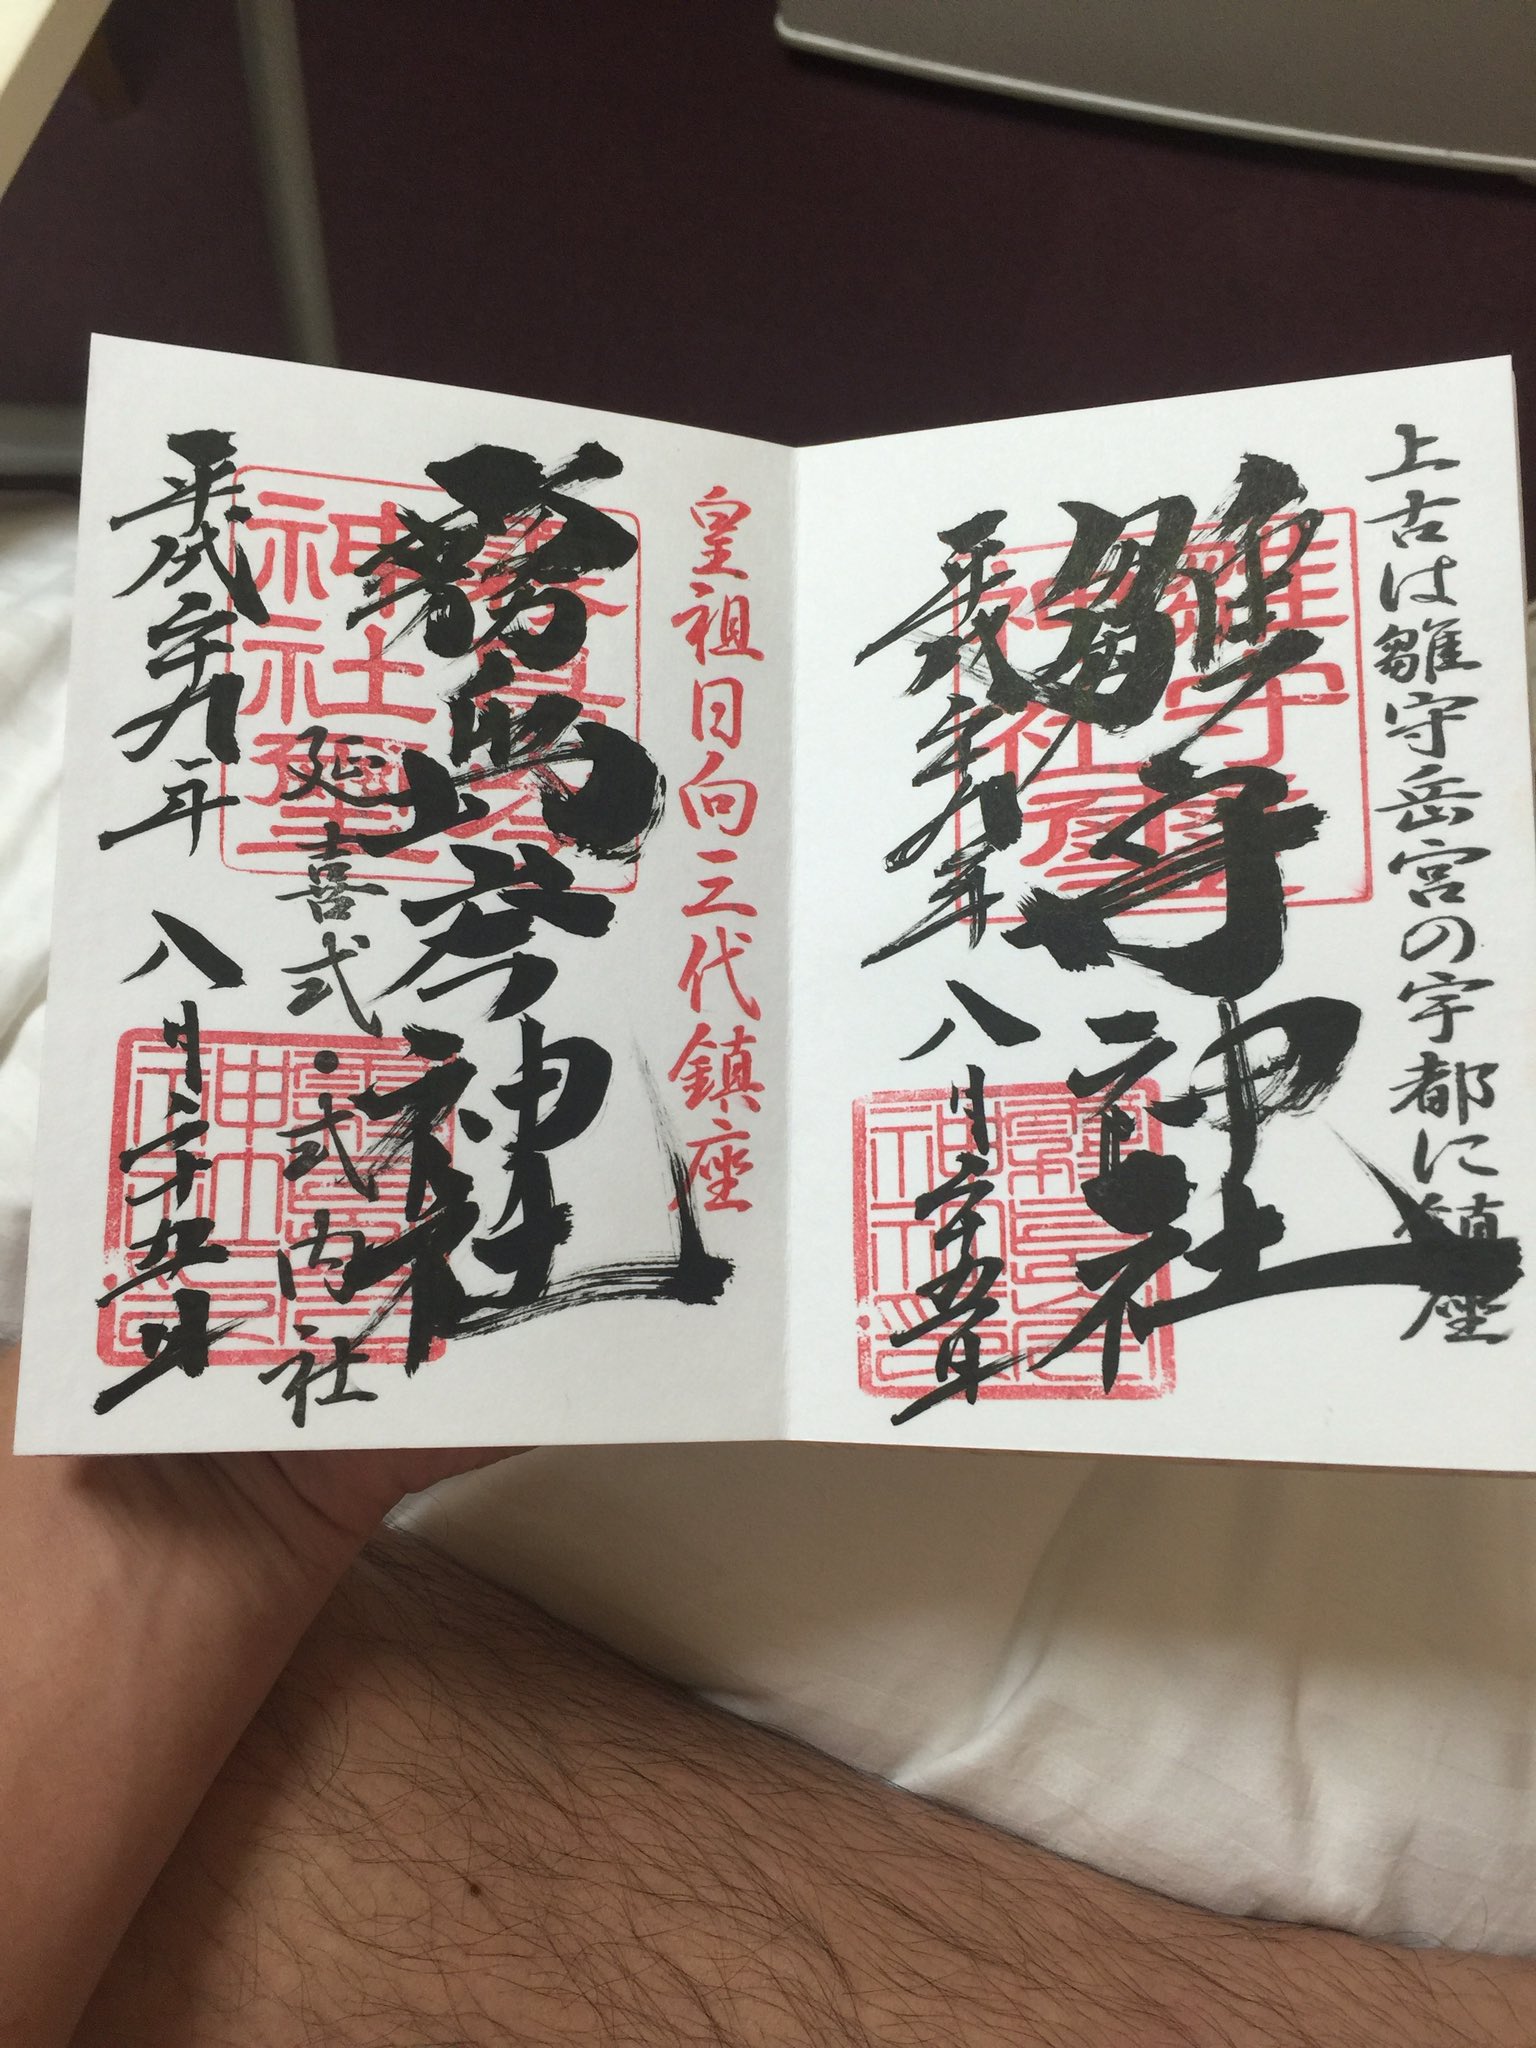 上古は雛守岳宮の宇都に鎮座
雛守神社
平成二十九年八月二十五日
雛守
神社璽
皇祖日向三代鎮座
霧島岑神社
延喜式・式内社
平成二十九年八月二十五日
神社璽